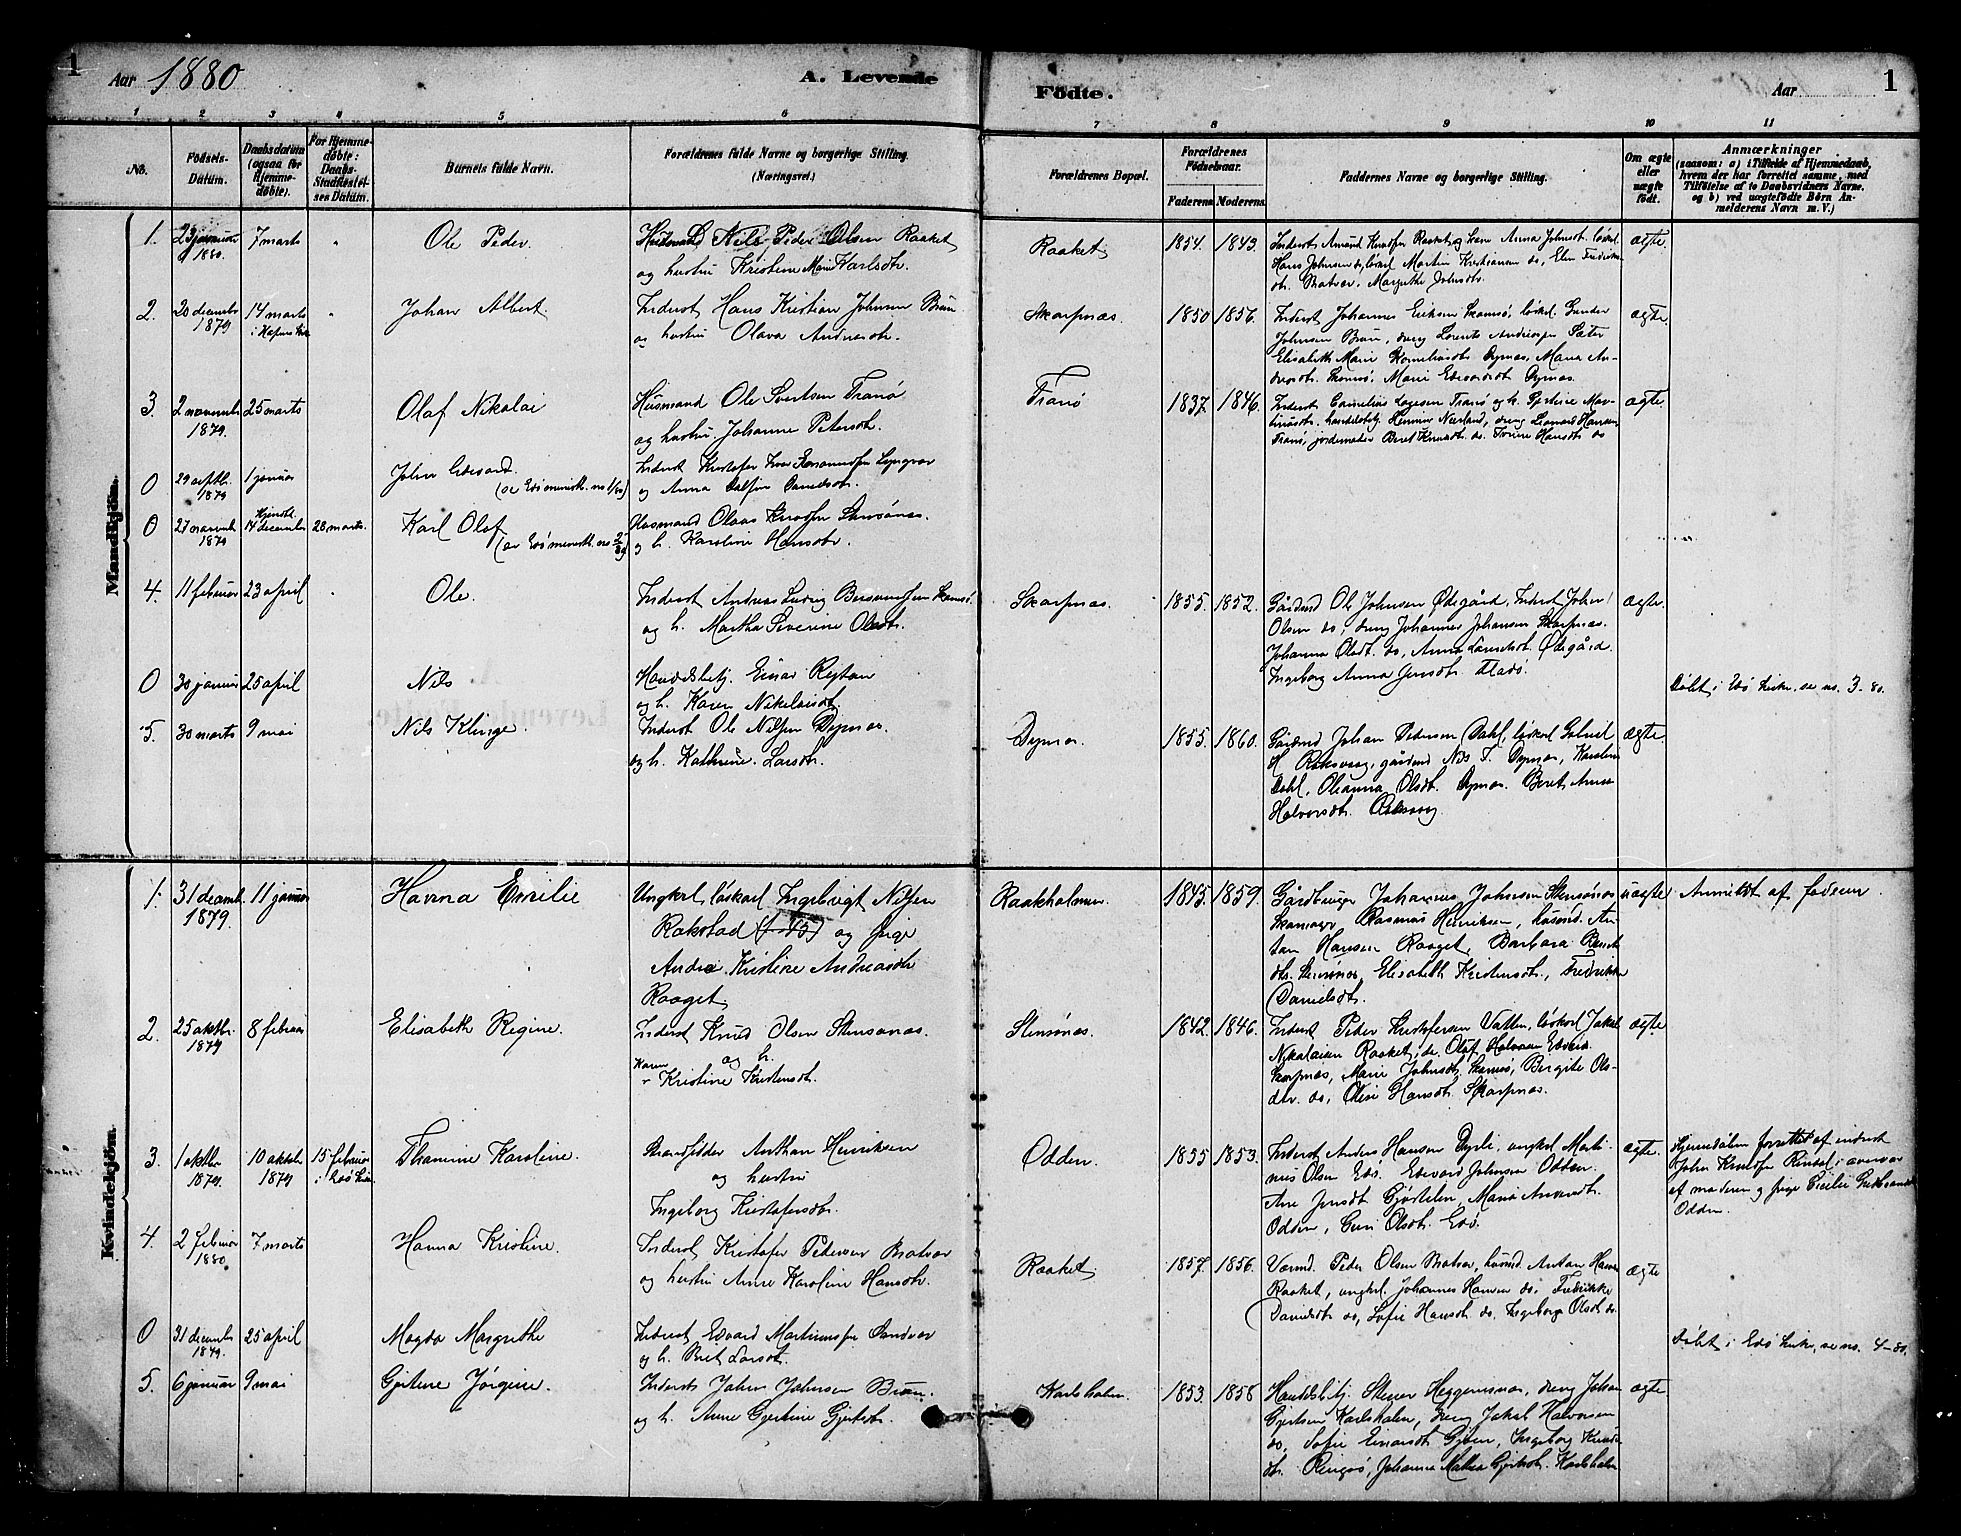 1 Aar 1880 A. Levende Födte. Aar 1
1 2 3 4 5 6 7 8 9 10 11
No.
Födsels-
Datum.
Daabsdatum
(ogsaa for
Hjemme-
døbte).
For Hjemme-
døbte:
Daabs-
Stadfæstel-
ses Datum.
Barnets fulde Navn.
Forældrenes fulde Navne og borgerlige Stilling.
(Næringsvei.)
Forældrenes Bopæl.
Forældrenes
Födselsaar.
Faderens Moderens
Faddernes Navne og borgerlige Stilling.
Om ægte
eller
uægte
født.
Anmærkninger
(saasom: a) i Tilfælde af Hjemmedaab,
hvem der har forrettet samme, med
Tilföielse af to Daabsvidners Navne.
og b) ved uægtefödte Börn An-
melderens Navn m. V.)
Mandkjön.
1. 23 januar 1880. 7 marts Ole Peder.
Nils Peder Olsen Raaket
og hustru Kristine Marie Karlsdtr.
Raaket 1854. 1843.
Inderst Amund Knudsen Raaket og kone Anna Johnsdt. løskrl.
Hans Johnsen do, løskrl Martin Kristiansen do, Elen Fredriks-
dt. Bratvær, Margrethe Johnsdt.
ægte.
2. 20 decembr 1879 14 marts Johan Albert.
Inderst Hans Kristian Johnsen Brun
og hustru Olava Andreasdt.
Skarpnæs. 1850 1856.
Inderst Johannes Eriksen Skamsø, løskrl. Gunder
Johnsen Brun, dreng Lorents Andreassen Sæter
Elisabeth Marie Korneliusdt. Dyrnæs, Maria An-
dreasdt. Skamsø, Marie Edvardsdt Dyrnæs.
ægte.
3. 2 novembr 1879. 25 marts Olaf Nikolai
Husmand Ole Sivertsen Tranø
og hustru Johanne Petersdt.
Tranø 1837. 1846.
Inderst Cornelius Lagesen Tranø og h.
handelsbtj. Henrik dreng Leonard Hansen
Tranø, jordemoder Beret Knudsdt. do. Trine Hansdt do
ægte.
0 29 septbr. 1879 1 januar John Edvard.
(se Edø ministb. no 1/80)
Inderst Kristofer
og Anna Dalfine Danielsdt.
0 27 novembr 1879 Hjemdt. 14 december 28 marts. Karl Olaf
(se Edø ministb. no 2/80)
Husmand Olaus Knudsen Stensønæs.
og h. Karoline Hansdtr.
4. 11 februar 23 april Ole.
Inderst Andreas Ludvig Skamsø
og h. Martha Severine Olsdtr.
Skarpnæs. 1855. 1852.
Gårdmd Ole Johnsen Ødegård, Inderst Johan
Olsen do, dreng Johannes Johansen Skarpnæs.
Johanna Olsdt. do, Anna Larsdt. Ødegård.
Ingeborg Anna Jensdt. Fladø.
ægte.
0 30 januar 25 april Nils
Handelsbtj. Einar Reitan
og h. Karen Nikolaisdt.
Døbt i Edø kirke, se no. 3-80.
5. 30 marts 9 mai Nils Klinge.
Inderst Ole Nilsen Dyrnæs
og h. Kathrine Larsdt.
Dyrnæs. 1855. 1860.
Gårdmd Johan Pedersen Dahl, løskrl Gabriel
H. Roksvaag, gårdmd Nils T. Dyrnæs, Karoline
Dahl, Oleanna Olsdt. Dyrnæs. Beret Anna
Halvorsdt. Roksvaag
ægte.
Kvindekjön.
1. 31 decemb. 1879. 11 januar Hanna Emilie
Ungkrl. løskarl Ingebrigt Nilsen
Rokstad (f. 45) og pige
Andrea Kristine Andreasdtr
Raaget.
Raakholmen. 1845. 1859.
Gårdbruger Johannes Johnsen Stensønæs
Rasmus Henriksen, husmd. An-
ton Hansen Raaget, Barbara
dt. Stensønæs, Elisabeth Kristensdt., Fredrikke
Danielsdt.
uægte Anmeldt af faderen.
2. 25 oktbr. 1879 8 februar Elisabeth Regine.
Inderst Knud Olsen Stensønæs.
og h.
Karen Kristine Kristensdt.
Stensønæs. 1842. 1846.
Inderst Peder Kristofersen Vatten, løskrl Jakob
Nikolaisen Raaket, do. Olaf Halvorsen
Skarpnæs, Marie Johnsdt Skamsø, Birgite Ols-
dtr. do, Oline Hansdt. Skarpnæs.
ægte
3. 1 oktbr 1879. 10 oktbr 1879 15 februar i Edø kirke Thamine Karoline.
Strandsidder Anthon Henriksen
og hustru
Ingeborg Kristofersdtr.
Odden. 1855 1853.
Inderst Anders Hansen ungkrl. Marti-
nus Olsen Edø. Edvard Johnsen Odden.
Ane Jensdt Gjøstølen, Maria Andersdt.
Odden, Guri Olsdt. Edø.
ægte. Hjemmedåben forrettet af inderst
John Knudsen Rindal i overvær
af moderen og pige Cicilie Gudbrandsdt
Odden.
4. 2 februar 1880. 7 marts Hanna Kristine.
Inderst Kristofer Pedersen Bratvær
og hustru Anne Karoline Hansdtr.
Raaket. 1857. 1856.
Værmd. Peder Olsen Bratvær, husmd. Anton Hansen
Raaket, ungkrl. Johannes Hansen do. Fredrikke
Danielsdt do, Sofie Hansdt. do, Ingeborg Olsdt. do.
ægte
0 31 decembr 1879. 25 april Magda Margrethe
Inderst Edvard Martinussen Sandvær
og h. Brit Larsdt.
Døbt i Edø kirke, se no. 4-80.
5. 6 januar 9 mai Gjertine Jørgine.
Inderst Johan Johnsen Bruun.
og h. Anne Gjertine Gjertsdt.
Karlsholm. 1853. 1858
Handelsbtj. Stener Heggemsnæs, dreng Johan
Gjertsen Karlsholm, dreng Jakob Halvorsen
do, Sofie Einarsdt. Gjøen, Ingeborg Knuds-
dt. Ringsø, Johanna Malena Gjertsdt. Karlsholm
ægte